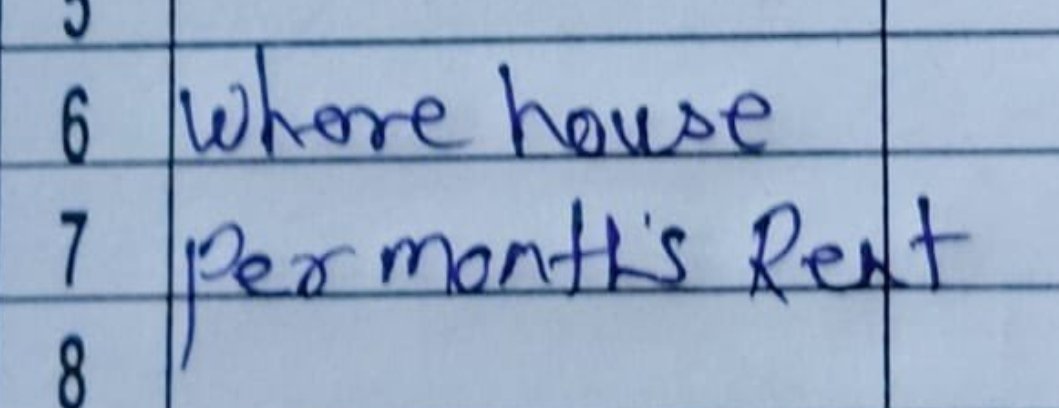 5
6 Whore house
7 Per month's Rent
8